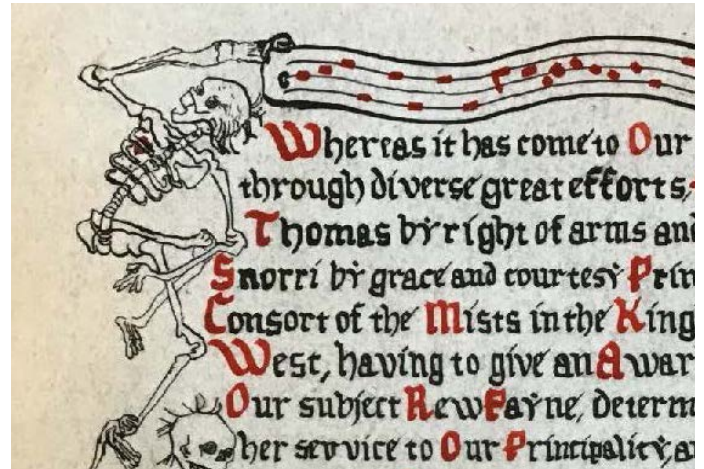 Whereas it has come to Our
through diverse great efforts,
Thomas by right of arms and
Snorri by grace and courtesy Prin
Consort of the Mists in the King
West, having to give an Awar
Our subject Rew Payne, determ
her service to Our Principality, a